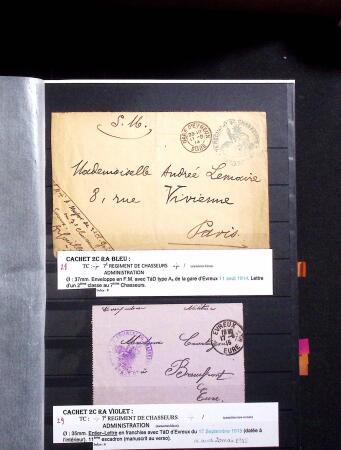 S. M.
GARE D'EVREUX
EURE
Mademoiselle Andrée Lemaire
8, rue Vivienne
Paris
CACHET 2C RA BLEU :
TC : 7ᵉ REGIMENT DE CHASSEURS /
ADMINISTRATION
29
Ø : 37mm. Enveloppe en F.M. avec TàD type A₄ de la gare d'Evreux 11 aout 1914. Lettre
d'un 2ème classe au 7ème Chasseurs.
Indice : 6
EVREUX
EURE
Madame
Beaumont
Eure
CACHET 2C RA VIOLET :
29
TC : 7ᵉ REGIMENT DE CHASSEURS /
ADMINISTRATION
Ø : 35mm. Entier-Lettre en franchise avec TàD d'Evreux du 17 Septembre 1915 (datée à
l'intérieur). 11ème escadron (manuscrit au verso).
Indice : 6